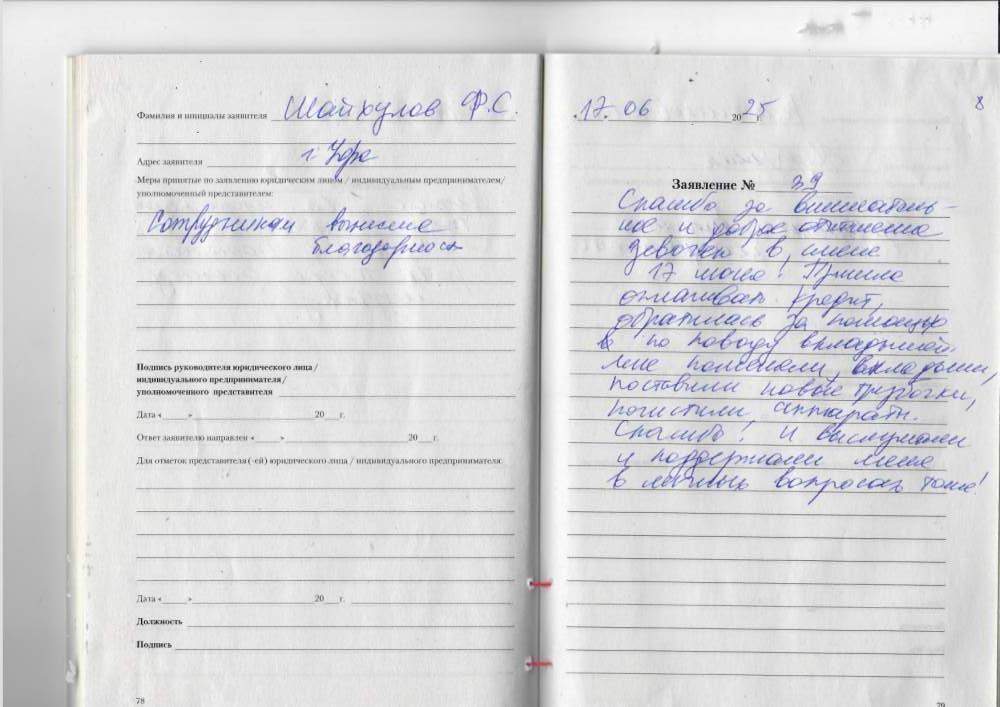 Фамилия и инициалы заявителя Шайхулов Ф.С.
Адрес заявителя г. Уфа
Меры принятые по заявлению юридическим лицом / индивидуальным предпринимателем/
уполномоченный представителем:
Сотрудникам вынесена
благодарность
Подпись руководителя юридического лица /
индивидуального предпринимателя /
уполномоченного представителя
Дата «____» 20__г.
Ответ заявителю направлен «____» 20__г.
Для отметок представителя (-ей) юридического лица / индивидуального предпринимателя:
Дата «____» 20__г.
Должность
Подпись
78
8
«17» 06 2025г.
Заявление № 39
Спасибо за вниматель-
ное и доброе отношение
девочек в смене
17 июня! Пришла
оплачивать кредит,
обратилась за помощью
в по поводу вкладышей
мне поменяли вкладыши,
поставили новые трубочки,
почистили аппараты.
Спасибо! И выслушали
и поддержали меня
в личных вопросах тоже!
79